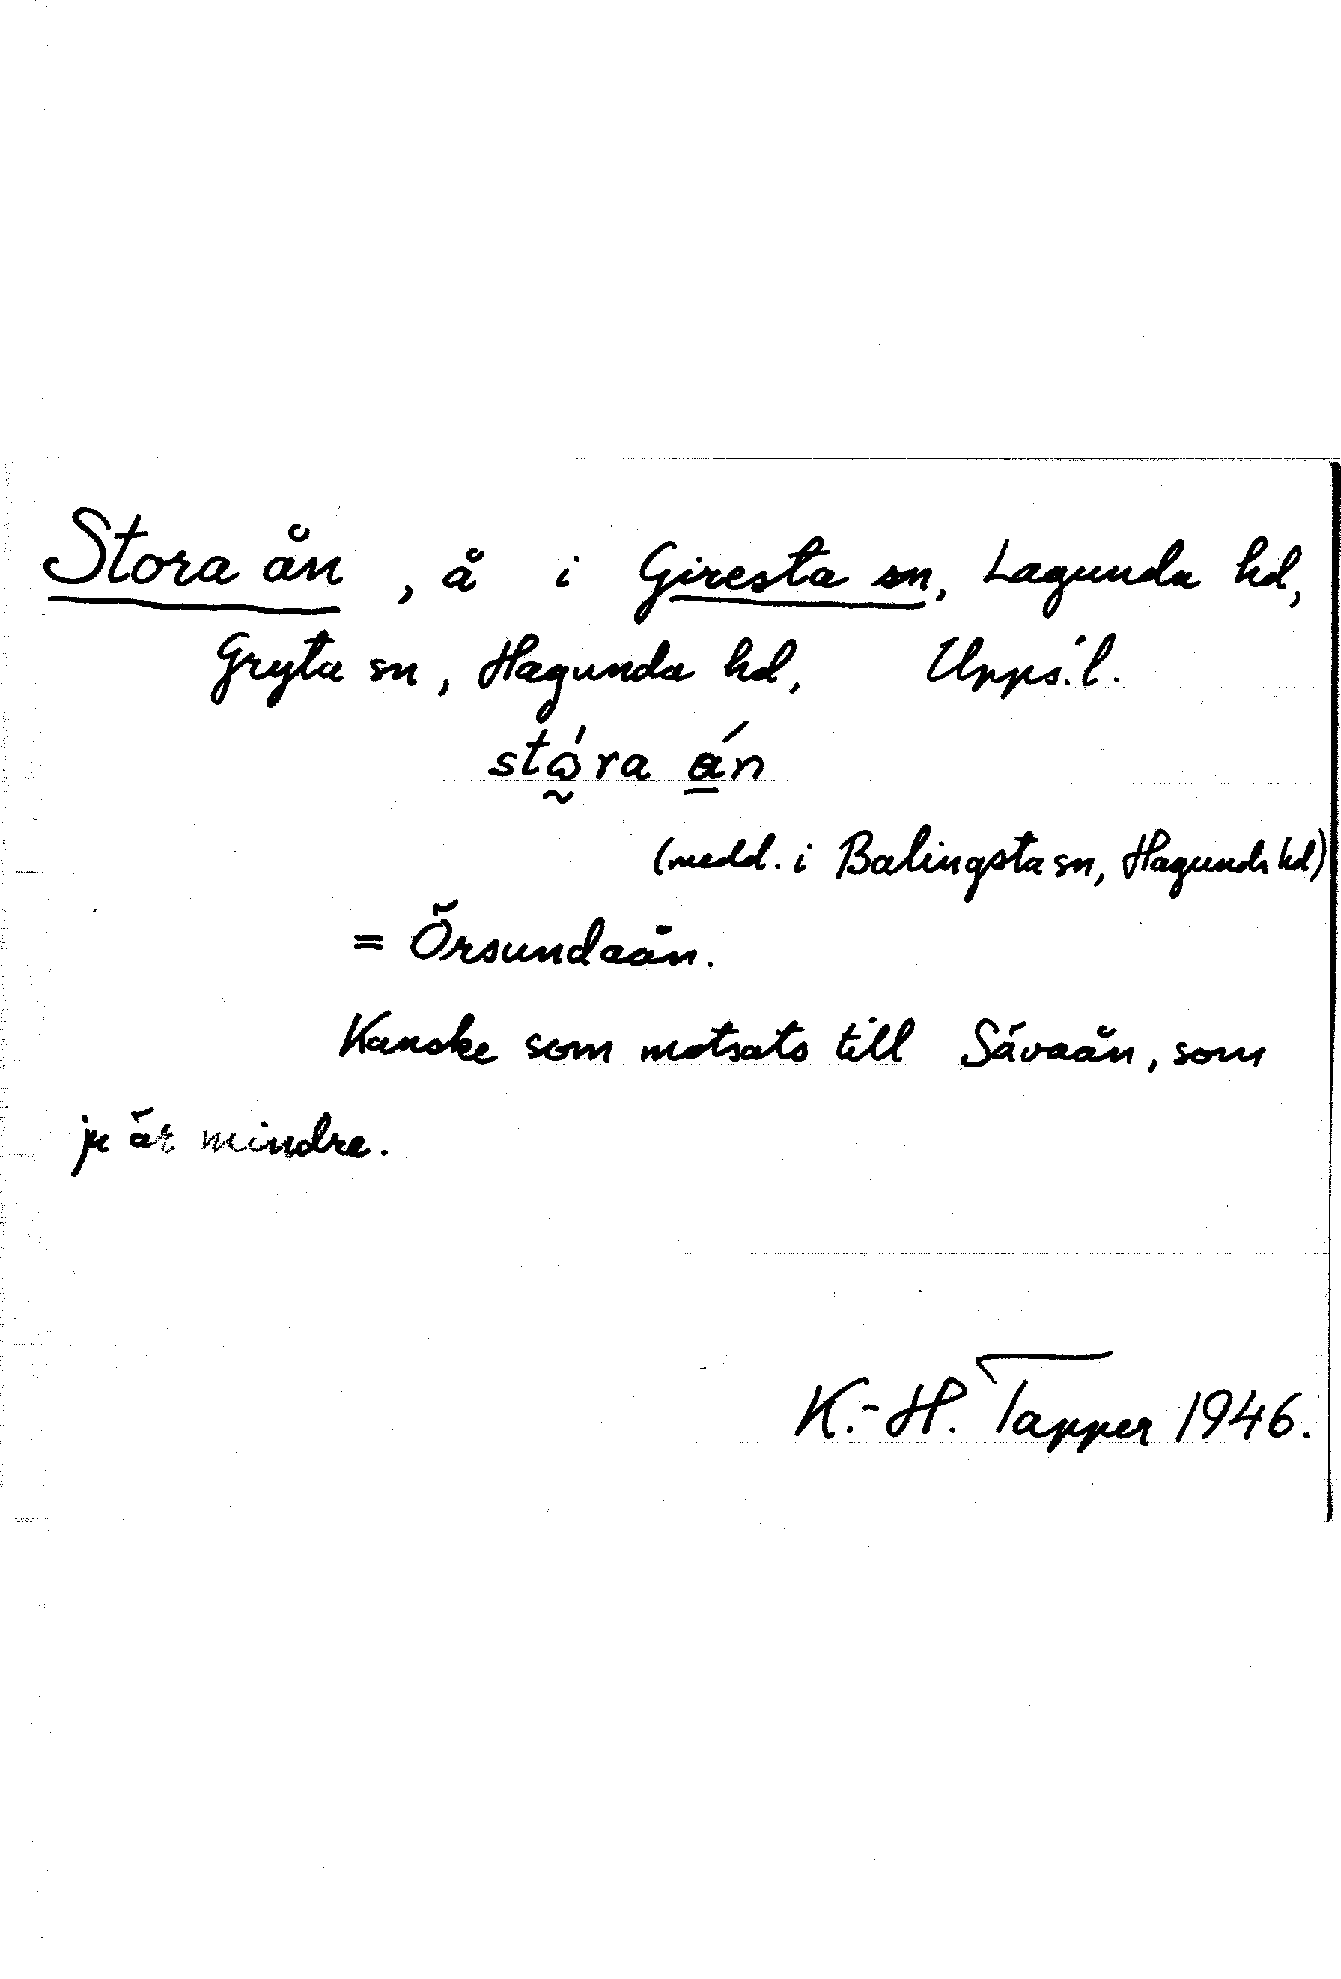 Stora ån, å i Giresta sn, Lagunda hd,
Gryta sn, Hagunda hd, Upps. l.
stó̰ra á̱n
(medd. i Balingsta sn, Hagunda hd)
= Örsundaån.
Kanske som motsats till Sävaån, som
ju är mindre.
K.-H. Tapper 1946.